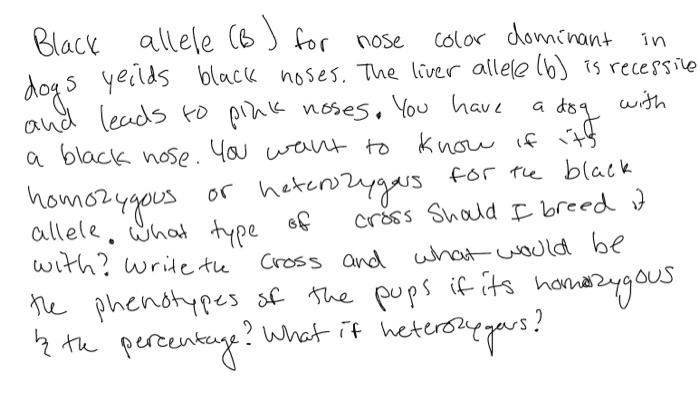 Black allele (B) for nose color dominant in
dogs yeilds black noses. The liver allele (b) is recessive
and leads to pink noses. You have a dog with
a black nose. You want to know if its
homozygous or heterozygous for the black
allele. What type of cross should I breed it
with? Write the cross and what would be
the phenotypes of the pups if its homozygous
& the percentage? What if heterozygous?